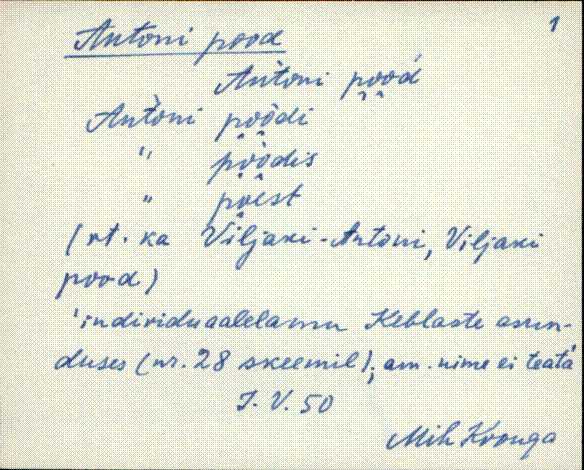 1
Antoni pood
Àntoni po̭o̭d́
Àǹtoni po̭o̭di
" po̭o̭dis
" po̭est
(vt. ka Viljaxi-Antoni, Viljaxi
pood)
'individuaalelamu Keblaste asun-
duses (nr. 28 skeemil); am. nime ei teata'
I. V. 50
Mih Kronga